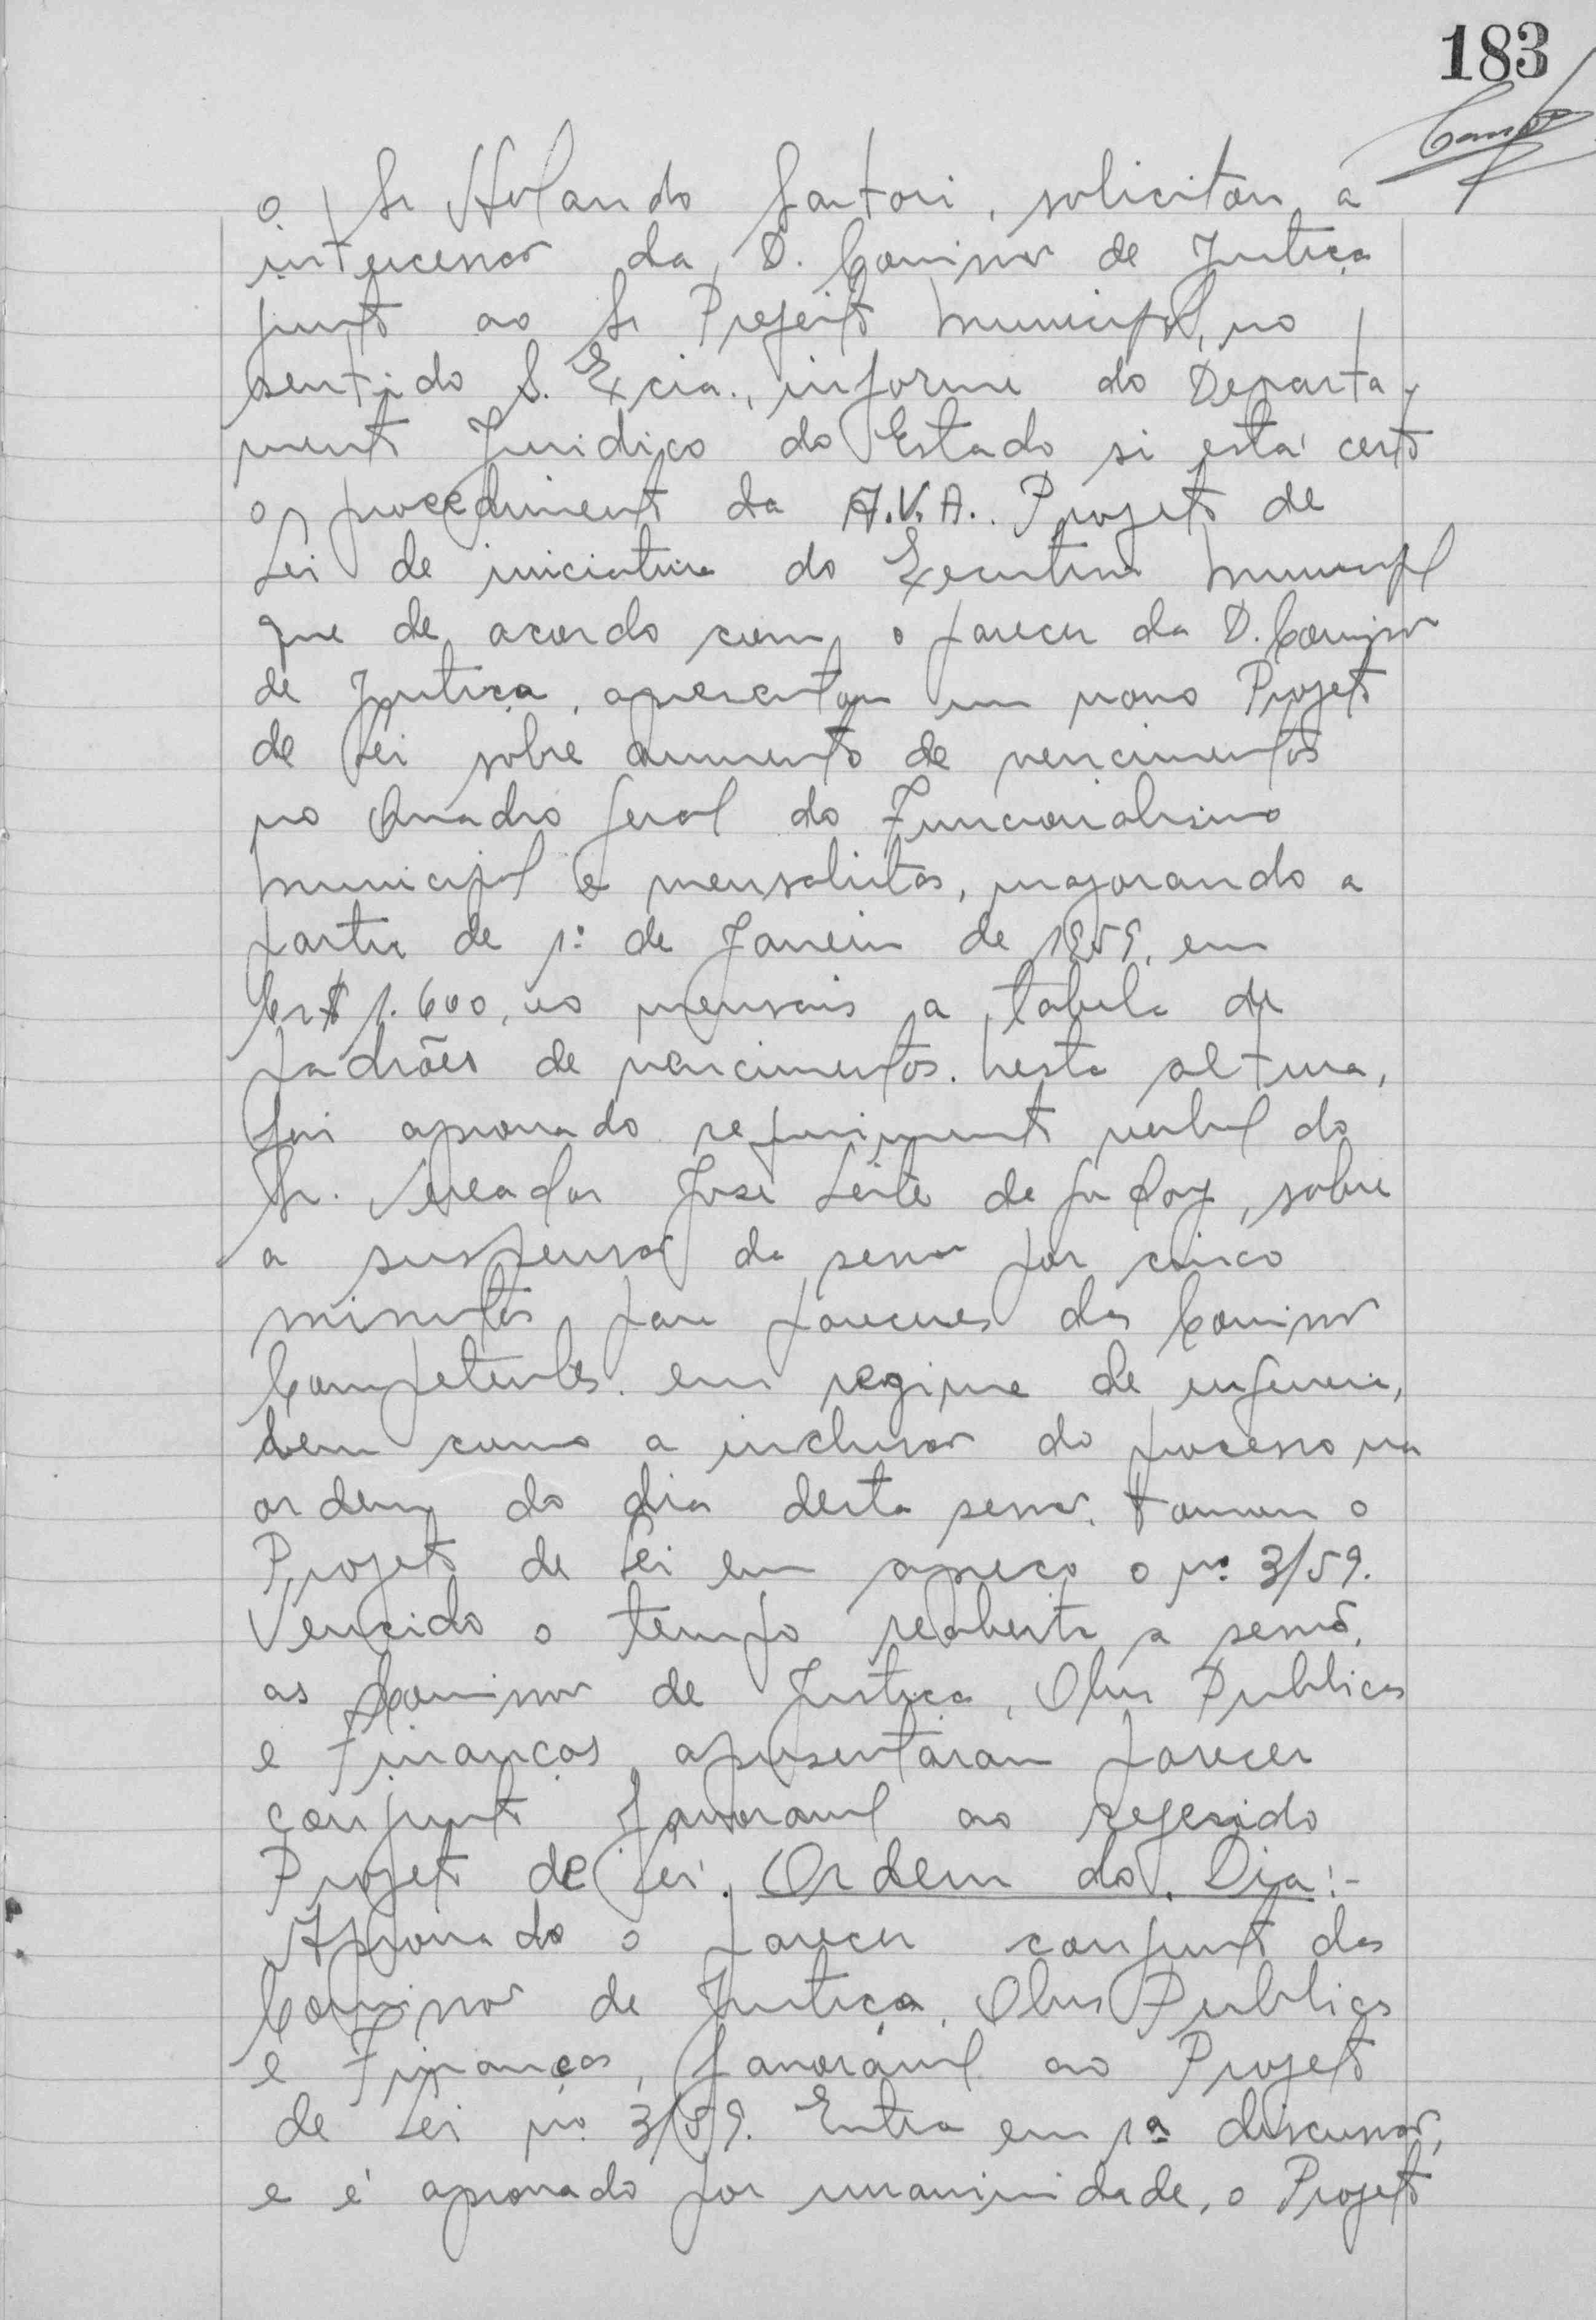 183
o Sr Holando Sartori, solicitou a
intercessão da D. Comissão de Justiça
junto ao Sr Prefeito Municipal, no
sentido S. Excia., informe do Departa-
mento Juridico do Estado si está certo
o procedimento da A.V.A.. Projeto de
Lei de iniciativa do Executivo Municipal
que de acordo com o parecer da D. Comissão
de Justiça, apresentou um novo Projeto
de Lei sobre aumento de vencimentos
no Quadro Geral do Funcionalismo
Municipal e mensalistas, majorando a
partir de 1º de Janeiro de 1959, em
Cr$ 1.600,00 mensais a tabela de
padrões de vencimentos. Nesta altura,
foi aprovado requerimento verbal do
Sr. Vereador José Leite de Godoy, sobre
a suspensão da sessão por cinco
minutos para pareceres das Comissão
Competentes em regime de urgencia,
bem como a inclusão do processo na
ordem do dia desta sessão. Tomou o
Projeto de Lei em apreço o nº 3/59.
Vencido o tempo reaberta a sessão,
as Comissão de Justiça, Obras Publicas
e Finanças apresentaram parecer
conjunto favoravel ao referido
Projeto de Lei. Ordem do Dia:-
Aprovado o parecer conjunto das
Comissão de Justiça, Obras Publicas
e Finanças, favoravel ao Projeto
de Lei nº 3/59. Entra em 1ª discussão,
e é aprovado por unanimidade, o Projeto